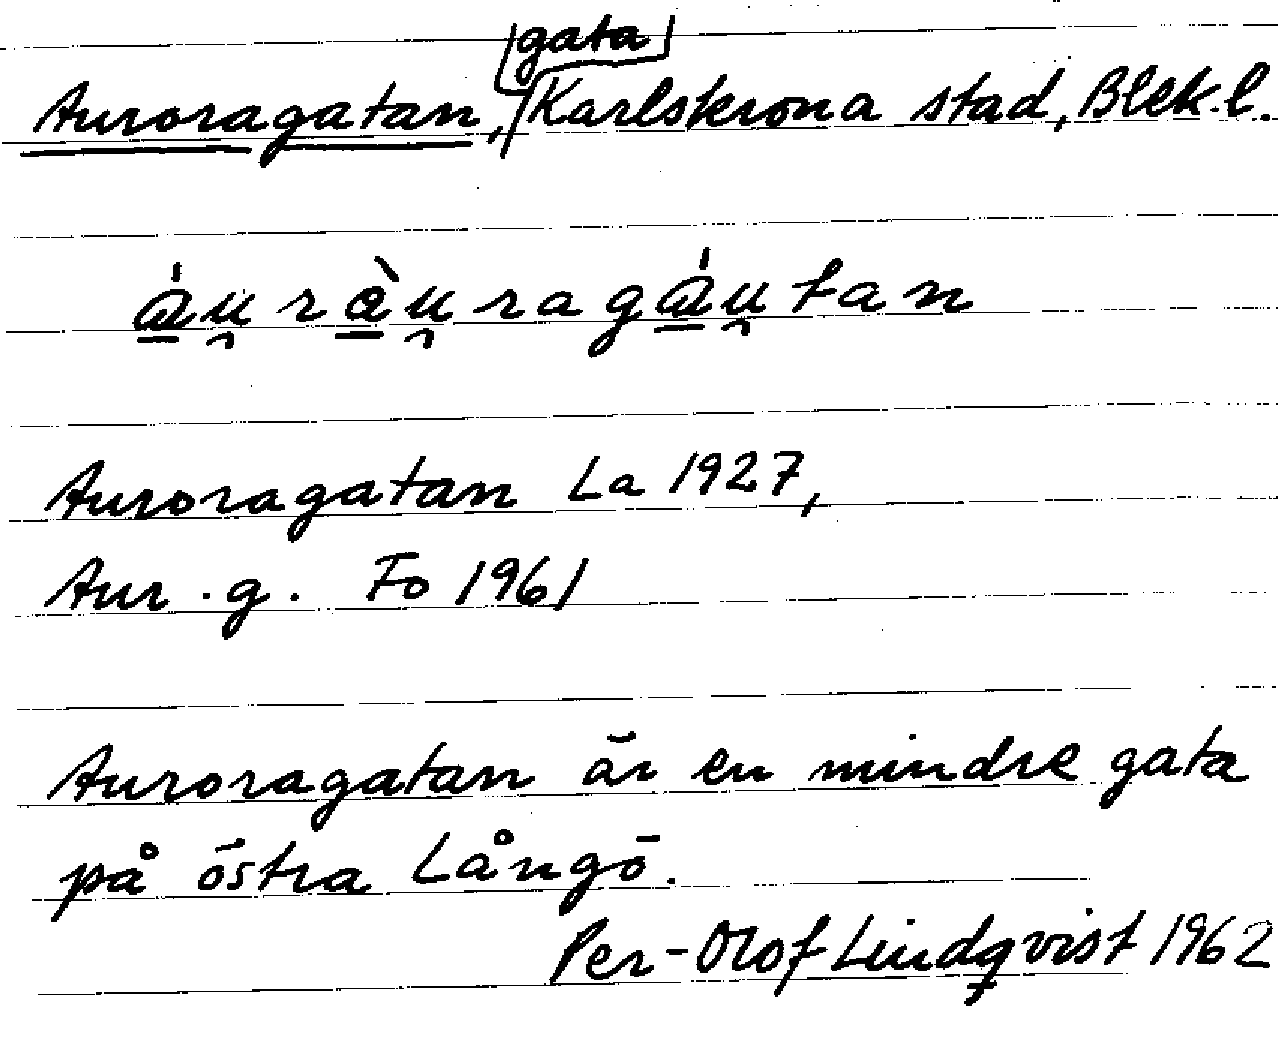 gata
Auroragatan, Karlskrona stad, Blek. l.
a̱̍u̯rà̱u̯raga̱̍u̯tan
Auroragatan La 1927,
Aur.g. Fo 1961
Auroragatan är en mindre gata
på östra Långö.
Per-Olof Lindqvist 1962